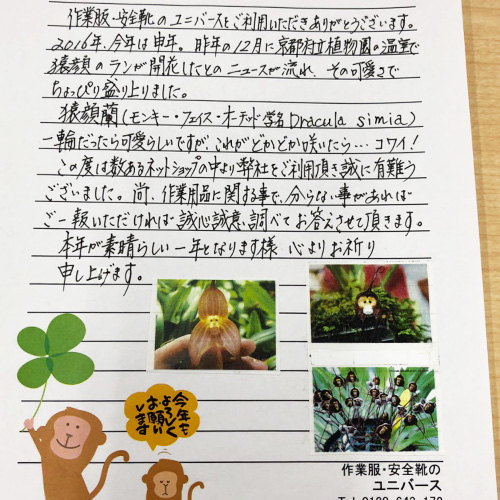 作業服・安全靴のユニバースをご利用いただきありがとうございます。
2016年、今年は申年。昨年の12月に京都府立植物園の温室で
猿顔のランが開花したとのニュースが流れ、その可愛さで
ちょっぴり盛り上りました。
猿顔蘭(モンキー・フェイス・オーキッド学名Dracula simia)
一輪だったら可愛らしいですが、これがどかどか咲いたら…コワイ!
この度は数あるネットショップの中より弊社をご利用頂き誠に有難う
ございました。尚、作業用品に関する事で、分らない事があれば
ご一報いただければ誠心誠意、調べてお答えさせて頂きます。
本年が素晴らしい一年となります様 心よりお祈り
申し上げます。
今年も
よろしく
お願い
します
作業服・安全靴の
ユニバース